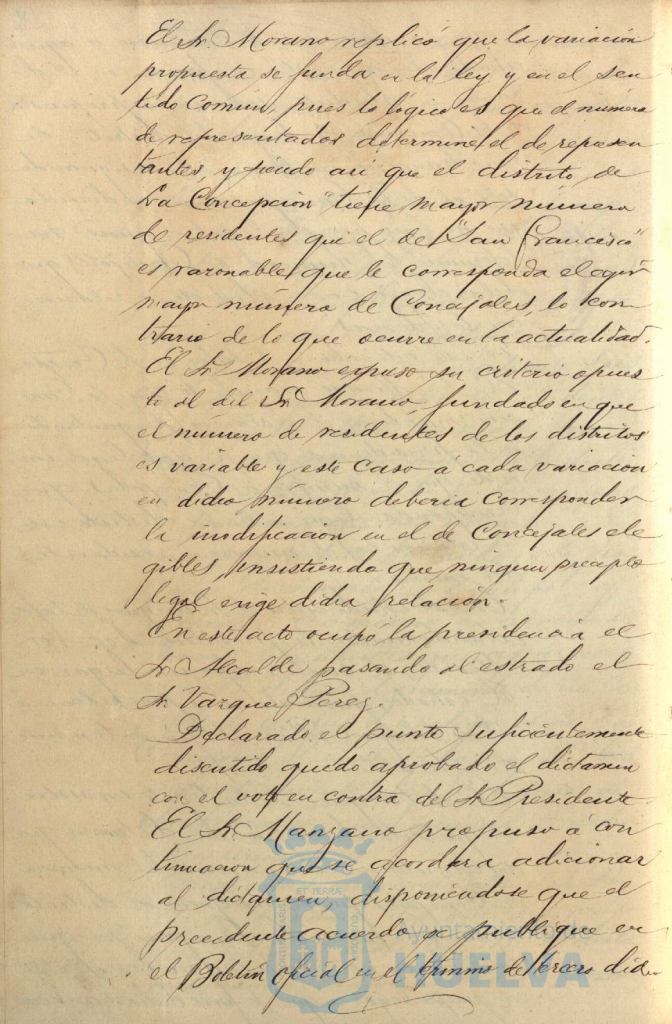 El Sr. Morano replicó que la variación
propuesta se funda en la ley y en el sen
tido común, pues lo logico es que el número
de representados determine el de represen
tantes, y siendo asi que el distrito de
"La Concepcion" tiene mayor número
de residentes que el de "San Francisco"
es razonable que le corresponda elegir
mayor número de Concejales, lo con
trario de lo que ocurre en la actualidad.
El Sr. Morano expuso su criterio opues
to al del Sr. Morano, fundado en que
el número de residentes de los distritos
es variable y este caso á cada variacion
en dicho número deberia corresponder
la modificacion en el de Concejales ele
gibles, insistiendo que ningun precepto
legal exige dicha relación.
En este acto ocupó la presidencia el
Sr. Alcalde pasando al estrado el
Sr. Vazquez Perez.
Declarado el punto suficientemente
discutido quedó aprobado el dictamen
con el voto en contra del Sr. Presidente.
El Sr. Manzano propuso á con
tinuacion que se acordara adicionar
al dictamen, disponiendose que el
precedente acuerdo se publique en
el Boletin oficial en el termino de tercero dia.
Ayuntamiento de
HUELVA